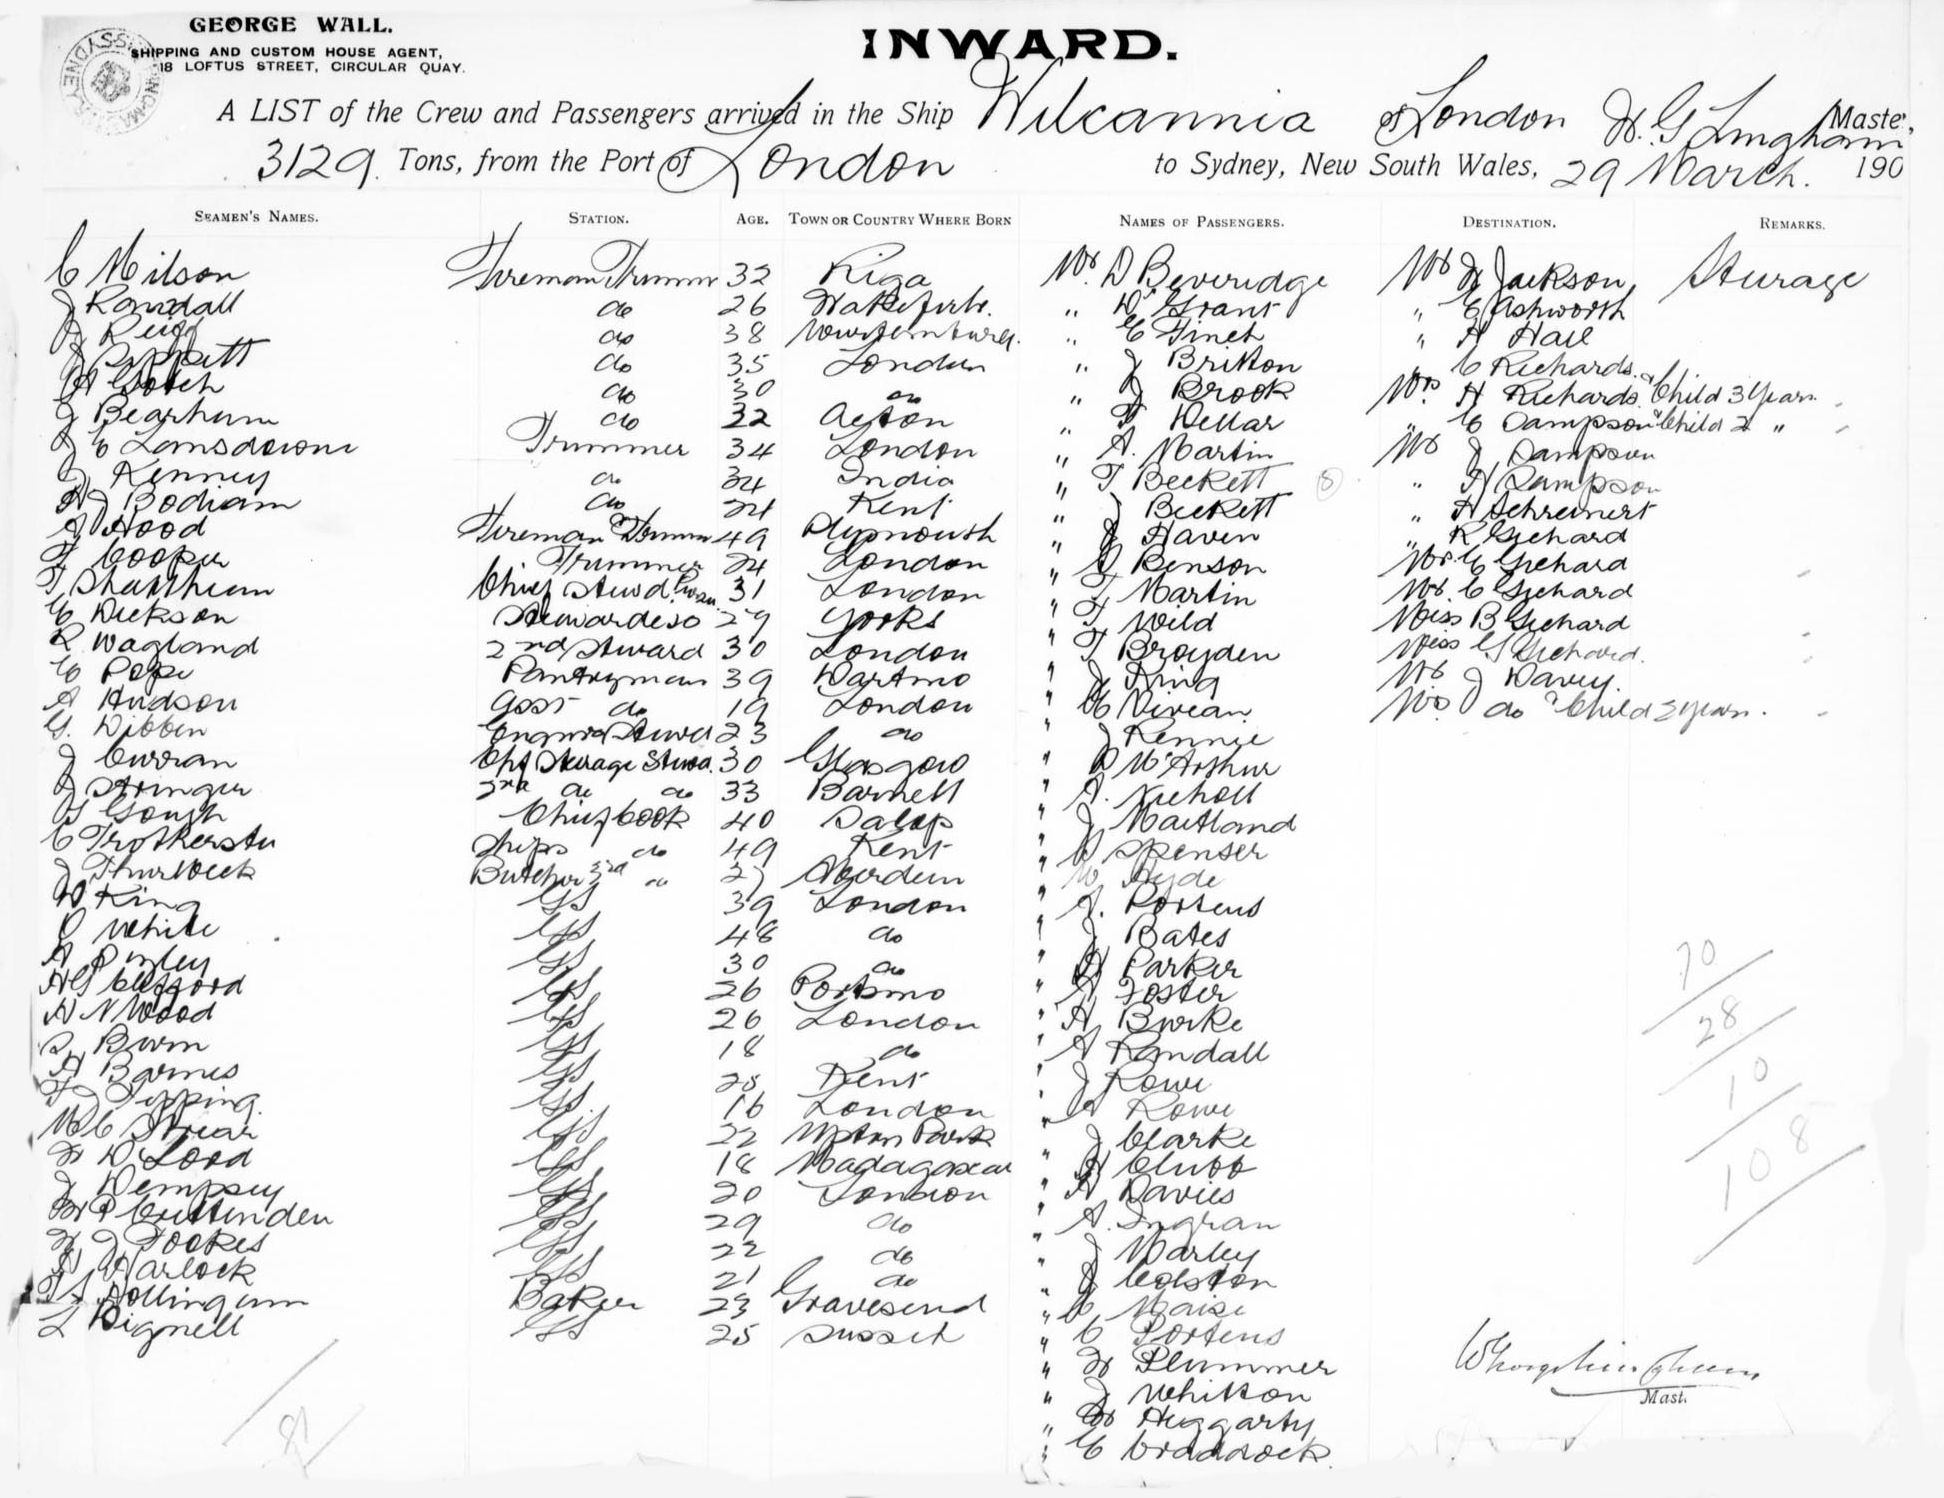 GEORGE WALL.
SHIPPING AND CUSTOM HOUSE AGENT,
18 LOFTUS STREET, CIRCULAR QUAY.
INWARD.
A LIST of the Crew and Passengers arrived in the Ship Wilcannia of London Master,
3129 Tons, from the Port of London to Sydney, New South Wales, 29 March. 190
SEAMEN'S NAMES. STATION. AGE. TOWN OR COUNTRY WHERE BORN
C Milson Fireman Trimmr 32 Riga
J Randall do 26
J do 38
J do 35 London
A Gotch do 30 do
J Bearhum do 32 Acton
J C Lansdowne Trimmer 34 London
J Kenney do India
A J Bodiam do 24 Kent
A Hood Fireman Trimmr 49 Plymouth
F Cooper Trimmer 24 London
T Chief Stewd 31 London
E Dickson Stewardess 29 Yorks
R Wagland 2nd Steward 30 London
C Pope Pantryman 39 Dartmo
A Hudson Asst do 19 London
G. Dibben 23 do
J Curran Chf Sterage Stwd. 30 Glasgow
J Stringer do do 33 Barnett
T Gough Chief Cook 40 Salop
C Ships do 49 Kent
J Thurlbeck Butcher 27 Aberdeen
W King GS 39 London
White GS 48 do
A GS 30 do
GS 26 Portsmo
A N Wood GS 26 London
Burn GS 18 do
A Barnes GS Kent
F J Tipping. GS 16 London
GS 22 Upton Park
GS 18 Madagascar
J Dempsey GS 20 London
Cruttenden GS 29 do
J Fookes GS 22 do
Harlock GS 21 do
Hollingum Baker 23 Gravesend
L Bignell GS 25 Sussex
NAMES OF PASSENGERS.
Mr. D Beveridge
" D Grant
" E Finch
" J Britton
" J Brook
" F Dellar
" A. Martin
" T Beckett 8
" J Beckett
" J Haven
" Benson
" F Martin
" F Wild
" F Broyden
" J King
" E Vivean
" J Rennie
" D McArthur
" A. Nicholl
" J Maitland
" Spenser
" Hyde
" A. Portens
" J Bates
" A Parker
" A Foster
" A Burke
" A Randall
" J Rowe
" A Rowe
" J Clarke
" A Clubb
" A Davies
" A. Ingran
" J Marley
" J Colston
" C
" C Portens
" Plummer
" J Whitton
" Heggarty
" C Craddock
DESTINATION. REMARKS.
Mr Jackson Sterage
" E Ashworth
" A Hall
" C Richards
Mrs H Richards & Child 3 Years
" C Sampson & Child 2 "
Mr J Sampson
" H Sampson
" H Schreinert
" R Gichard
Mr. E Gichard
Mr. C Gichard
Miss B Gichard
Miss G Gichard.
Mr J Davey.
Mrs J do & Child 2 years.
70
28
10
108
Mast.